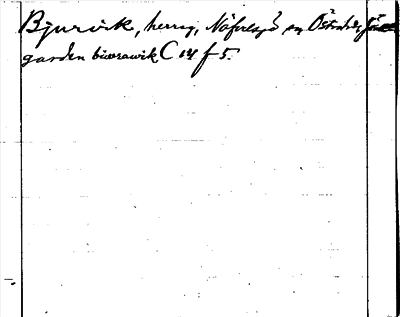 Bjurvik, herrg, Nöferlsjö sn, Östra hds
garden biwrawik C 14 f 5.